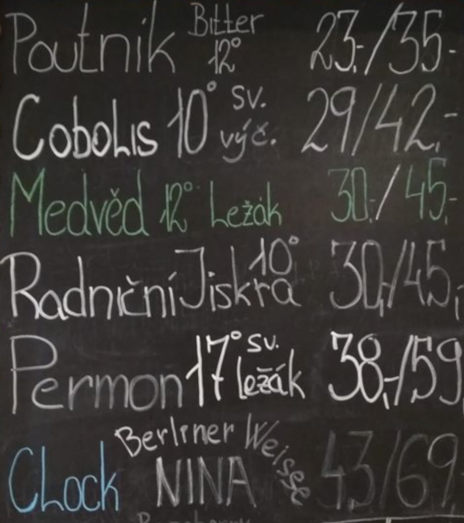 Poutník Bitter 12° 23,-/35,-
Cobolis 10° sv. výč. 29/42,-
Medvěd 12° Ležák 30,-/45,-
Radniční Jiskra 10° 30,-/45,-
Permon 17° sv. ležák 38,-/59
Clock Berliner Weisse NINA 43/69